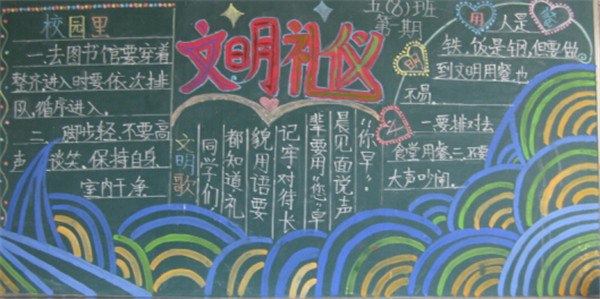 校园里
一.去图书馆要穿着
整齐进入时要依次排
风,循序进入.
二.脚步轻,不要高
声谈笑.保持自身
室内干净
文明礼仪
五(8)班
第 期
文明歌
同学们
都知道,礼
貌用语要
记牢.对待长
辈要用"您".早
晨见面说声
"你早".
文明用餐
人是
铁,饭是钢,但要做
到文明用餐也
不易.
一要排对去
食堂用餐二.不要
大声吵闹.